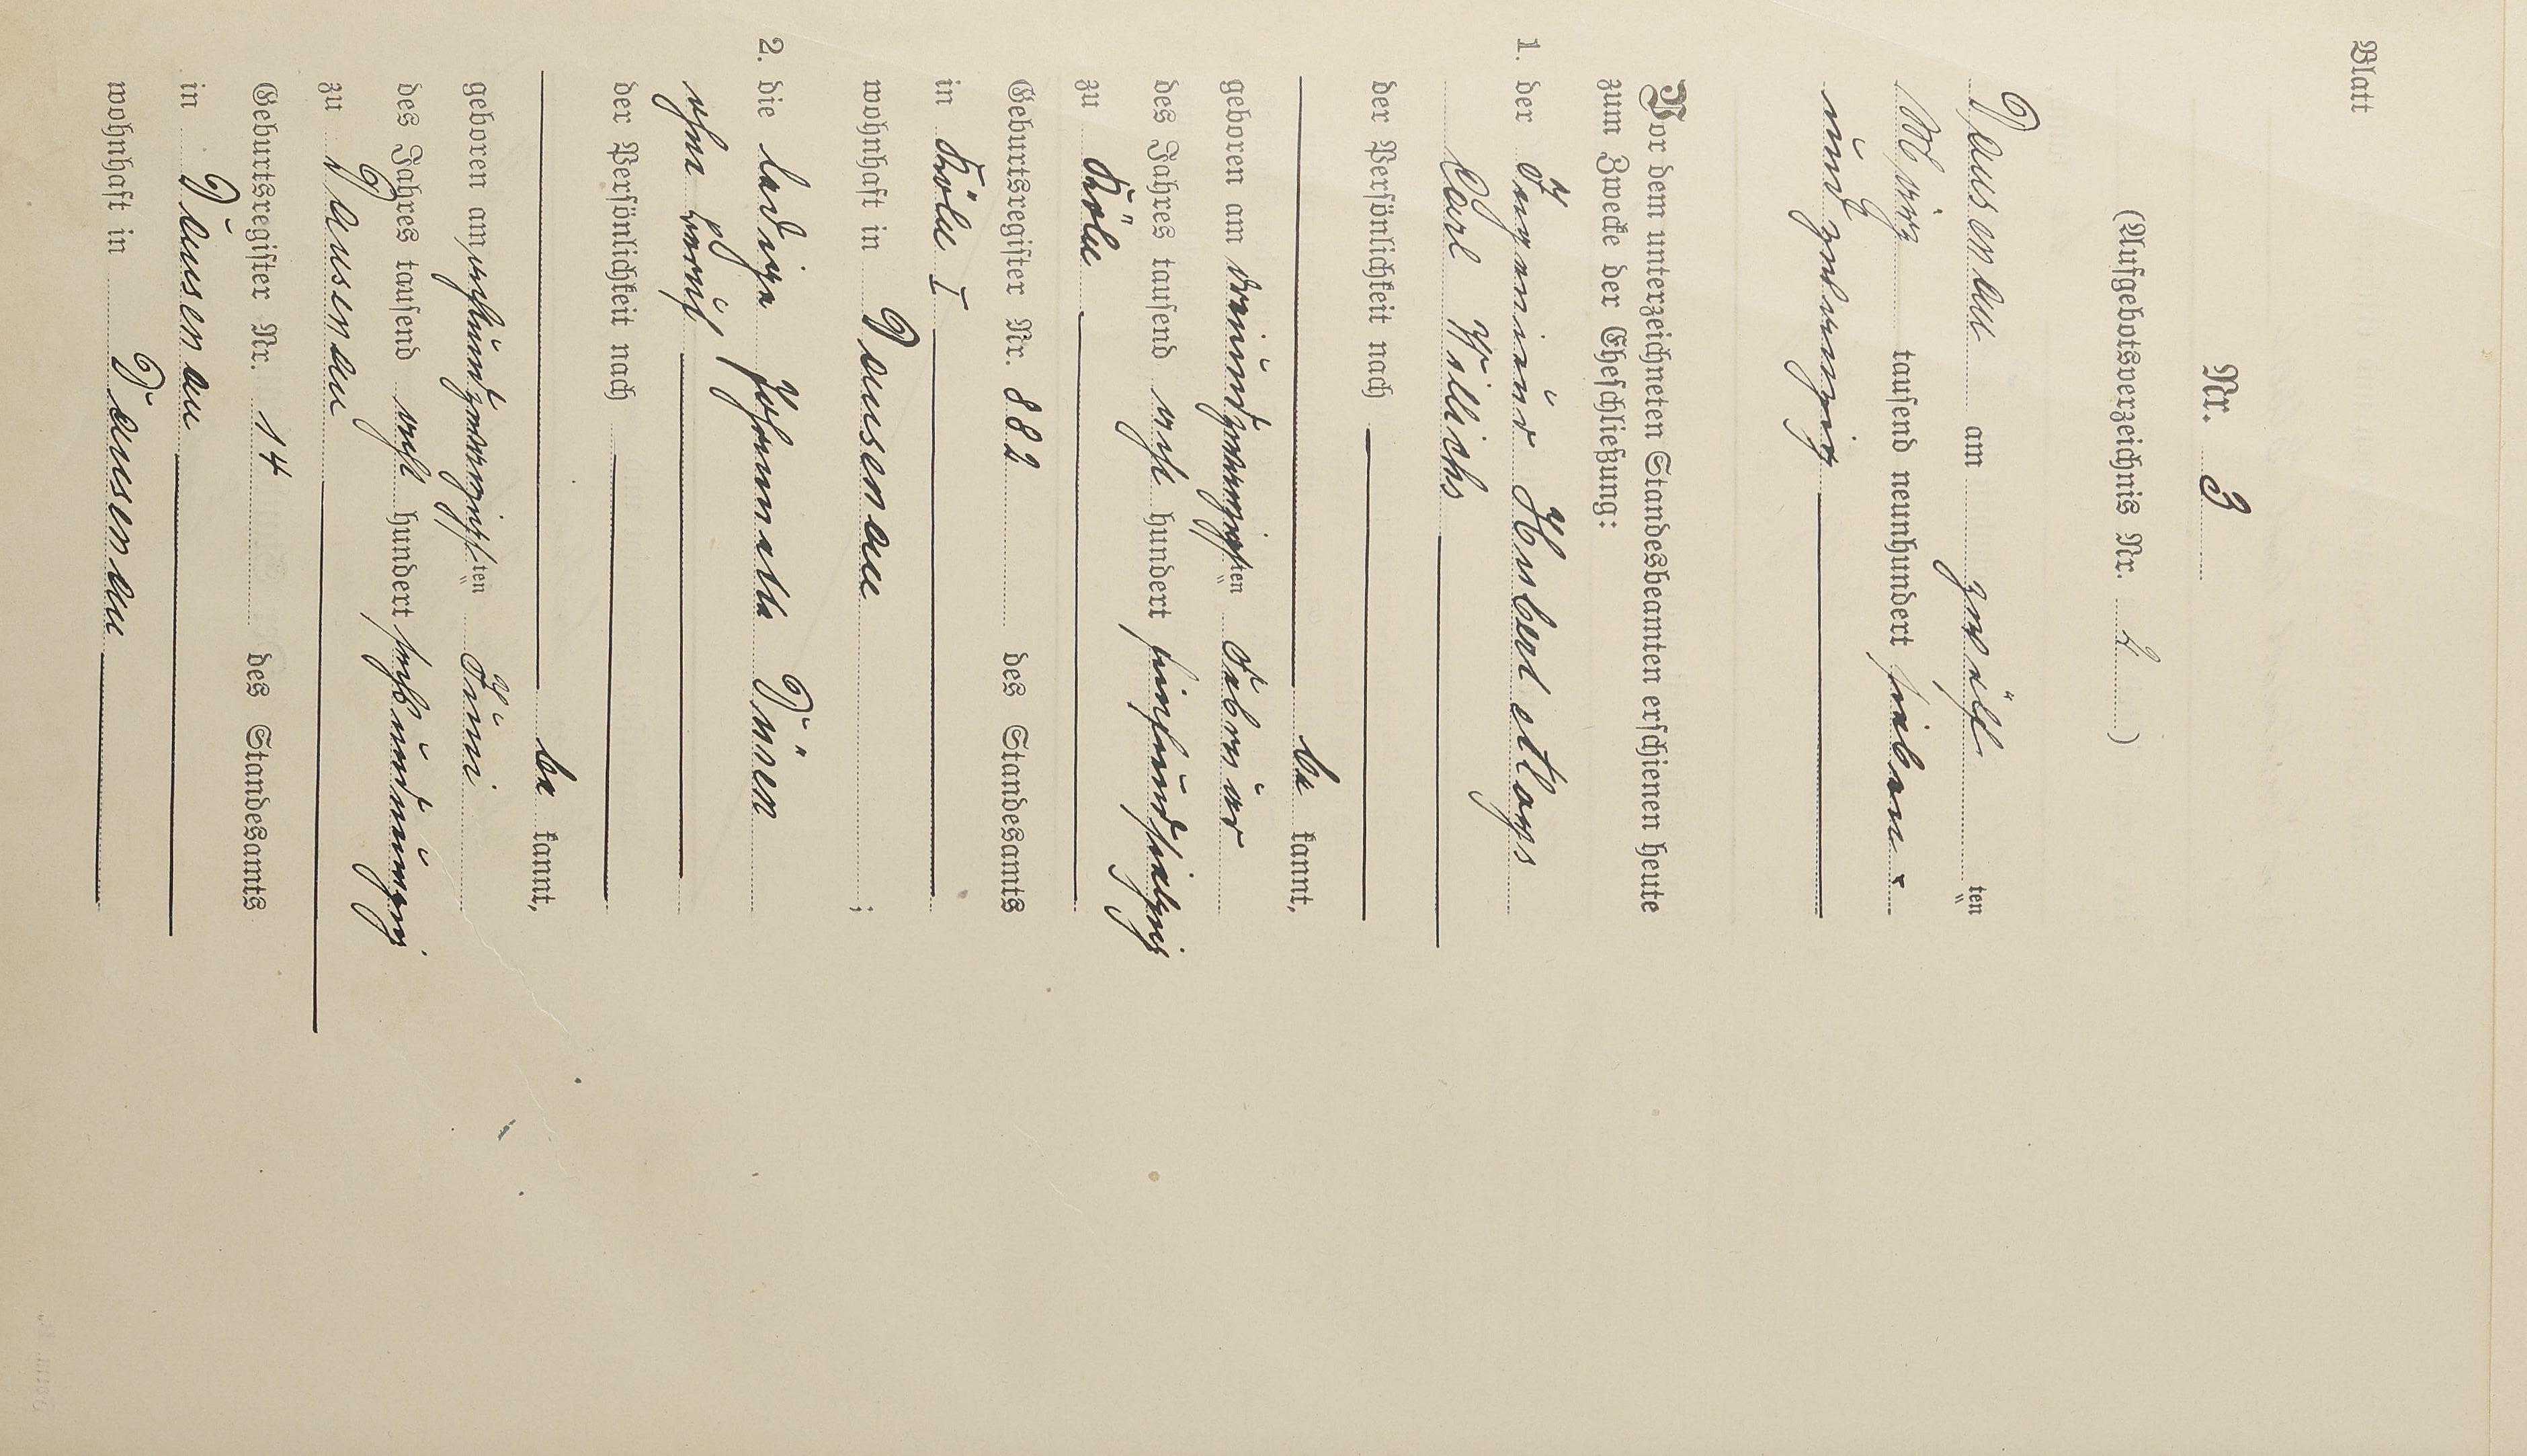 Blatt
Nr. 3
(Aufgebotsverzeichnis Nr. 2)
Dausenau am zwölf ten
März tausend neunhundert sieben-
undzwanzig
Vor dem unterzeichneten Standesbeamten erschienen heute
zum Zwecke der Eheschließung:
1. der Ingenieur Hubert Aloys
Carl Willichs
der Persönlichkeit nach
be kannt,
geboren am dreiundzwanzigsten Februar
des Jahres tausend acht hundert fünfundsiebzig
zu Köln
Geburtsregister Nr. 882 des Standesamts
in Köln I
wohnhaft in Dausenau ;
2. die ledige Johannette
ohne Beruf,
der Persönlichkeit nach
be kannt,
geboren am achtundzwanzigsten Juni
des Jahres tausend acht hundert sechsundneunzig
zu Dausenau
Geburtsregister Nr. 14 des Standesamts
in Dausenau
wohnhaft in Dausenau